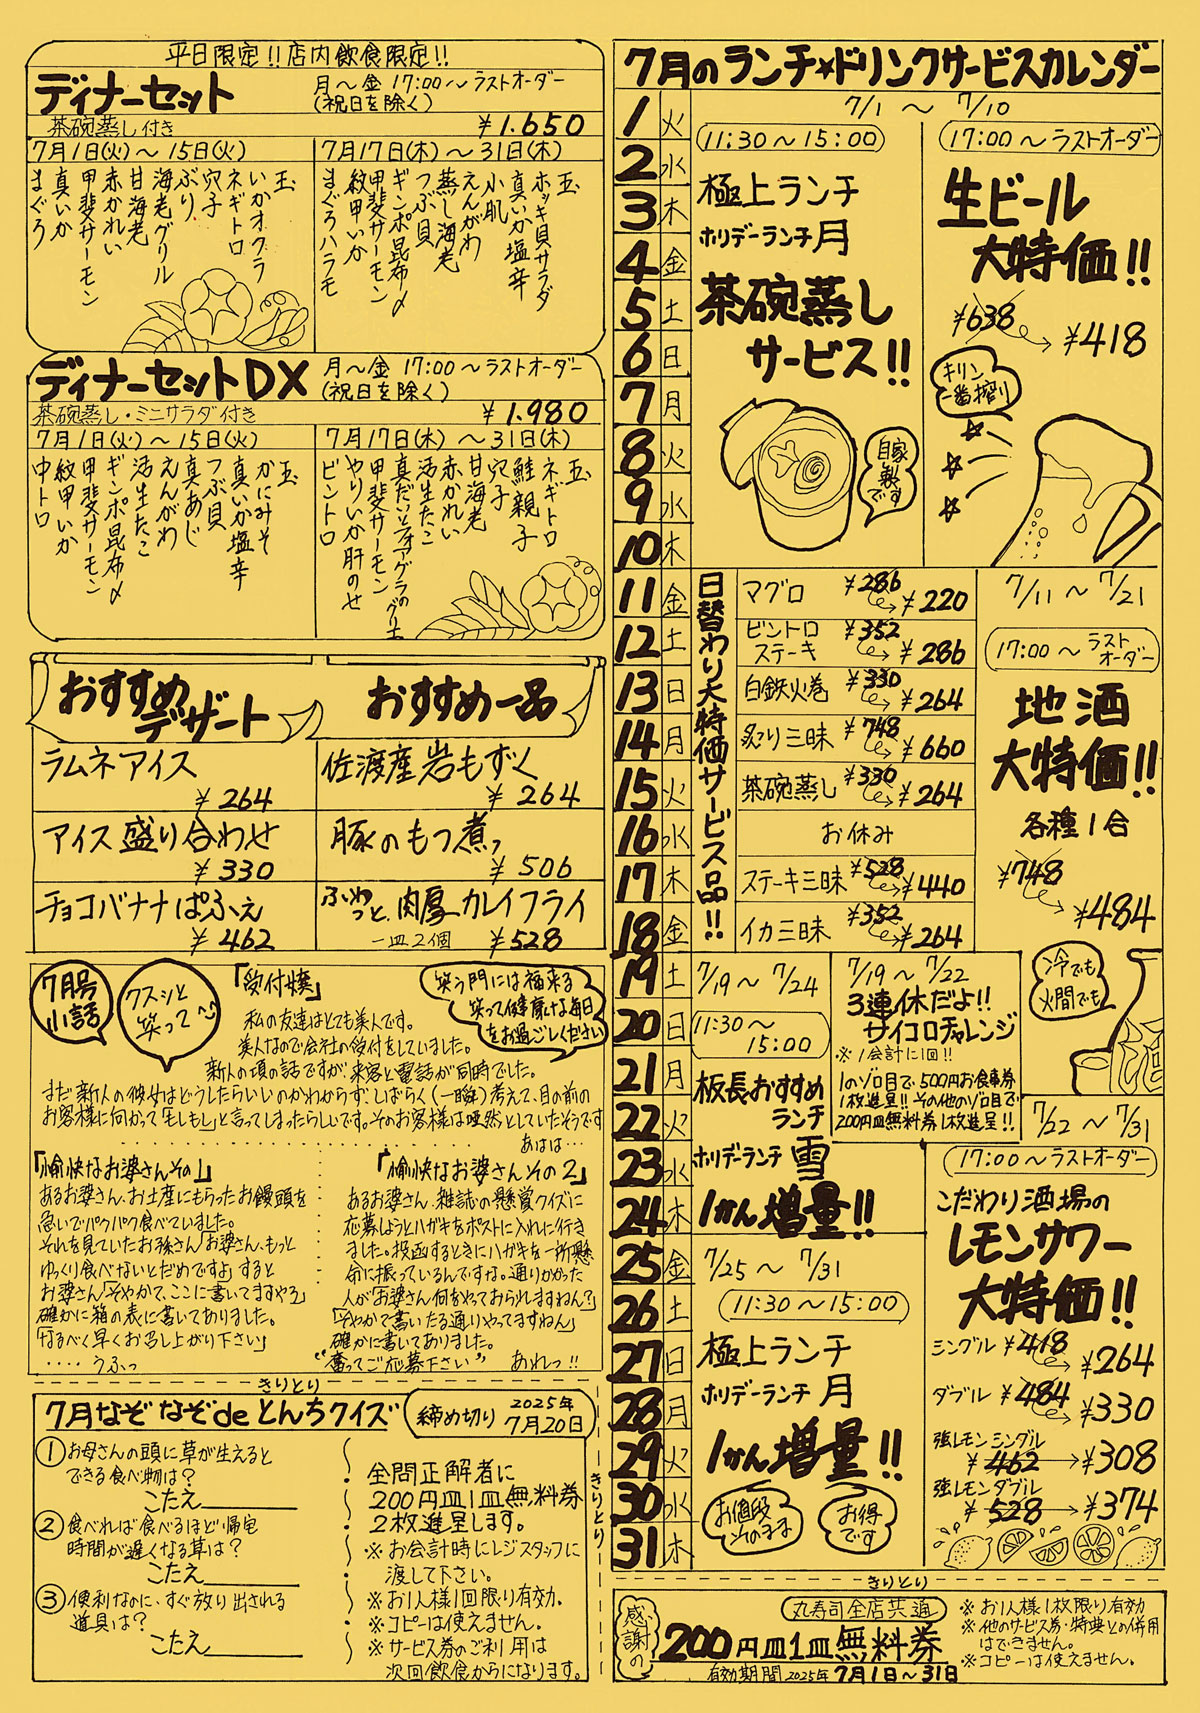 平日限定!!店内飲食限定!!
ディナーセット
月～金 17:00～ラストオーダー
(祝日を除く)
茶碗蒸し付き
¥1.650
7月1日(火)～15日(火)
玉
いかオクラ
ネギトロ
穴子
ぶり
海老グリル
甘海老
赤かれい
甲斐サーモン
真いか
まぐろ
7月17日(木)～31日(木)
玉
ホッキ貝サラダ
真いか塩辛
小肌
えんがわ
蒸し海老
つぶ貝
ギンポ昆布〆
甲斐サーモン
紋甲いか
まぐろハラモ
ディナーセットDX
月～金 17:00～ラストオーダー
(祝日を除く)
茶碗蒸し・ミニサラダ付き
¥1.980
7月1日(火)～15日(火)
玉
かにみそ
真いか塩辛
つぶ貝
真あじ
えんがわ
活生たこ
ギンポ昆布〆
甲斐サーモン
紋甲いか
中トロ
7月17日(木)～31日(木)
玉
ネギトロ
鮭親子
穴子
甘海老
赤かれい
活生たこ
真だいとフォアグラのグリエ
甲斐サーモン
やりいか肝のせ
ビントロ
おすすめデザート
ラムネアイス
¥264
アイス盛り合わせ
¥330
チョコバナナぱふぇ
¥462
おすすめ一品
佐渡産岩もずく
¥264
豚のもつ煮
¥506
ふわっと、肉厚カレイフライ
一皿2個 ¥528
7月号
小話
クスッと
笑って
笑う門には福来る
笑って健康な毎日
をお過ごしください
「受付嬢」
私の友達はとても美人です。
美人なので会社の受付をしていました。
新人の頃の話ですが、来客と電話が同時でした。
まだ新人の彼女はどうしたらいいのかわからず、しばらく(一瞬)考えて、目の前の
お客様に向かって「もしもし」と言ってしまったらしいです。そのお客様は唖然としていたそうです
あはは…
「愉快なお婆さんその1」
あるお婆さん、お土産にもらったお饅頭を
急いでパクパク食べていました。
それを見ていたお孫さん「お婆さん、もっと
ゆっくり食べないとだめですよ」すると
お婆さん「そやかて、ここに書いてますやろ」
確かに箱の表に書いてありました。
「なるべく早くお召し上がり下さい」
‥‥うふっ
「愉快なお婆さんその2」
あるお婆さん、雑誌の懸賞クイズに
応募しようとハガキをポストに入れに行き
ました。投函するときにハガキを一所懸
命に振っているんですな。通りかかった
人が「お婆さん何をやっておられますねん?」
「そやかて書いたる通りやってますねん」
確かに書いてありました。
"奮ってご応募下さい" あれっ!!
きりとり
7月なぞなぞdeとんちクイズ
締め切り 2025年
7月20日
①お母さんの頭に草が生えると
できる食べ物は?
こたえ
②食べれば食べるほど帰宅
時間が遅くなる草は?
こたえ
③便利なのに、すぐ放り出される
道具は?
こたえ
全問正解者に
200円皿1皿無料券
2枚進呈します。
※お会計時にレジスタッフに
渡して下さい。
※お1人様1回限り有効。
※コピーは使えません。
※サービス券のご利用は
次回飲食からになります。
きりとり
7月のランチ★ドリンクサービスカレンダー
1火
2水
3木
4金
5土
6日
7月
8火
9水
10木
11金
12土
13日
14月
15火
16水
17木
18金
19土
20日
21月
22火
23水
24木
25金
26土
27日
28月
29火
30水
31木
7/1～7/10
11:30～15:00
極上ランチ
ホリデーランチ月
茶碗蒸し
サービス!!
自家製です
17:00～ラストオーダー
生ビール
大特価!!
¥638
¥418
キリン
一番搾り
日替わり大特価サービス品!!
マグロ ¥286 ¥220
ビントロステーキ ¥352 ¥286
白鉄火巻 ¥330 ¥264
炙り三昧 ¥748 ¥660
茶碗蒸し ¥330 ¥264
お休み
ステーキ三昧 ¥528 ¥440
イカ三昧 ¥352 ¥264
7/11～7/21
17:00～ラストオーダー
地酒
大特価!!
各種1合
¥748
¥484
冷でも
火間でも
酒
7/19～7/24
11:30～
15:00
板長おすすめ
ランチ
ホリデーランチ 雪
1かん増量!!
7/19～7/22
3連休だよ!!
サイコロチャレンジ
※1会計に1回!!
1のゾロ目で500円お食事券
1枚進呈!!その他のゾロ目で
200円皿無料券1枚進呈!!
7/22～7/31
17:00～ラストオーダー
こだわり酒場の
レモンサワー
大特価!!
シングル ¥418 ¥264
ダブル ¥484 ¥330
強レモンシングル
¥462→¥308
強レモンダブル
¥528→¥374
7/25～7/31
11:30～15:00
極上ランチ
ホリデーランチ月
1かん増量!!
お値段
そのまま
お得
です
きりとり
感謝の
丸寿司全店共通
200円皿1皿無料券
有効期間2025年7月1日～31日
※お1人様1枚限り有効
※他のサービス券・特典との併用
はできません。
※コピーは使えません。